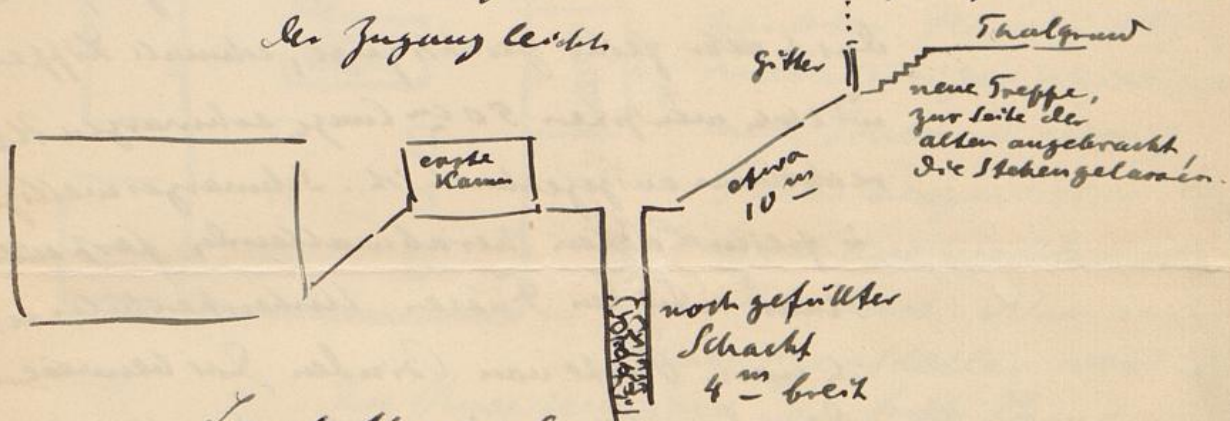 der Zugang leicht
Thalgrund
Gitter
neue Treppe,
zur Seite der
alten angebracht,
die Stehengelassen.
erste
Kamm
etwa
10 m
noch gefüllter
Schacht
4 m breit